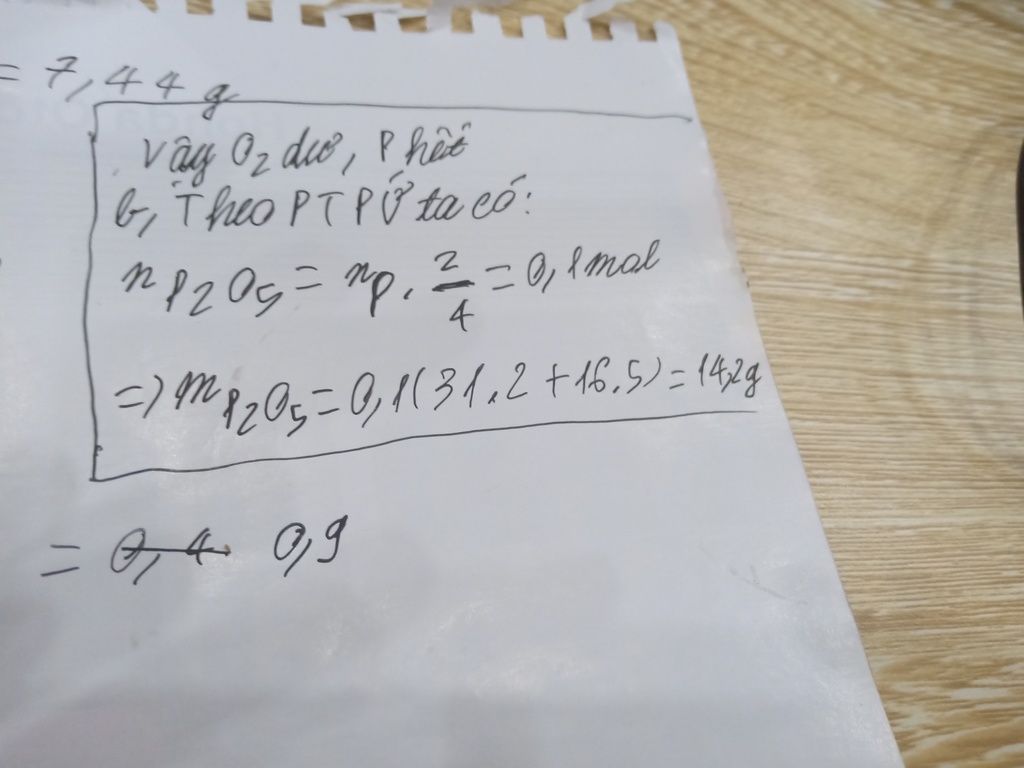 = 7,44 g
Vậy O₂ dư, P hết
b, Theo PTPỨ ta có:
n P₂O₅ = nP. 2/4 = 0,1 mol
=> m P₂O₅ = 0,1(31.2 + 16.5) = 14,2g
= 0,4 0,9